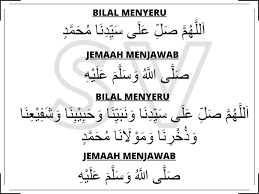 BILAL MENYERU
اَللّٰهُمَّ صَلِّ عَلَى سَيِّدِنَا مُحَمَّدٍ
JEMAAH MENJAWAB
صَلَّى اللّٰهُ وَسَلَّمَ عَلَيْهِ
BILAL MENYERU
اَللّٰهُمَّ صَلِّ عَلَى سَيِّدِنَا وَنَبِيِّنَا وَحَبِيْبِنَا وَشَفِيْعِنَا
وَذُخْرِنَا وَمَوْلَانَا مُحَمَّدٍ
JEMAAH MENJAWAB
صَلَّى اللّٰهُ وَسَلَّمَ عَلَيْهِ